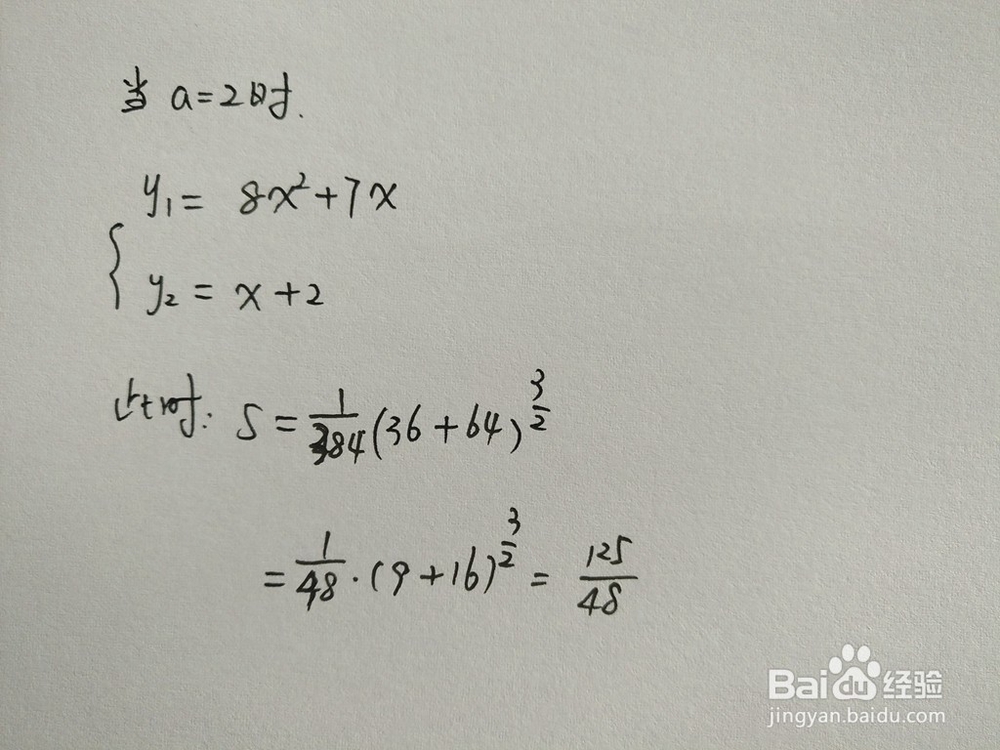 当 a=2时.
y₁= 8x²+7x
{ y₂ = x+2
此时: S = 1/384 (36+64)^(3/2)
= 1/48 · (9+16)^(3/2) = 125/48
Baidu 经验
jingyan.baidu.com